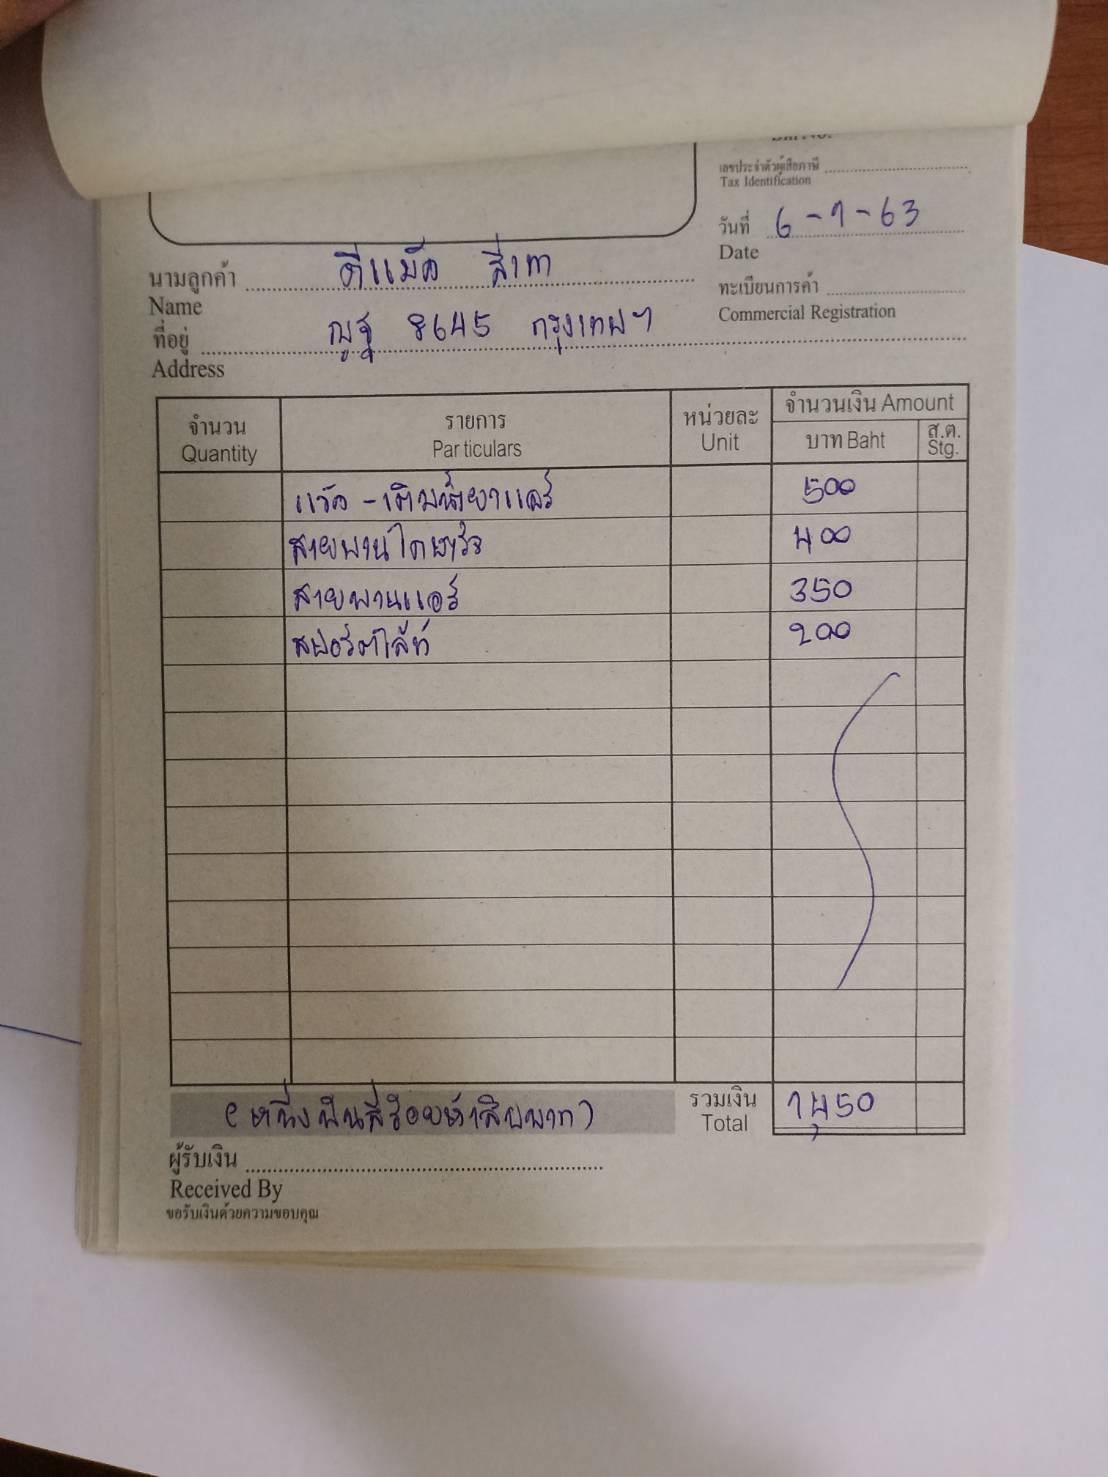 เลขประจำตัวผู้เสียภาษี
Tax Identification
วันที่ 6-1-63
Date
นามลูกค้า ดีแม็ค สีเทา
Name
ทะเบียนการค้า
Commercial Registration
ที่อยู่ 8645 กรุงเทพฯ
Address
จำนวน รายการ หน่วยละ จำนวนเงิน Amount
Quantity Particulars Unit บาท Baht ส.ต. Stg.
500
สายพานไดชาร์จ 400
สายพานแอร์ 350
สปอร์ตไล้ท์ 200
(หนึ่งพันสี่ร้อยห้าสิบบาท) รวมเงิน 1,450
Total
ผู้รับเงิน
Received By
ขอรับเงินด้วยความขอบคุณ